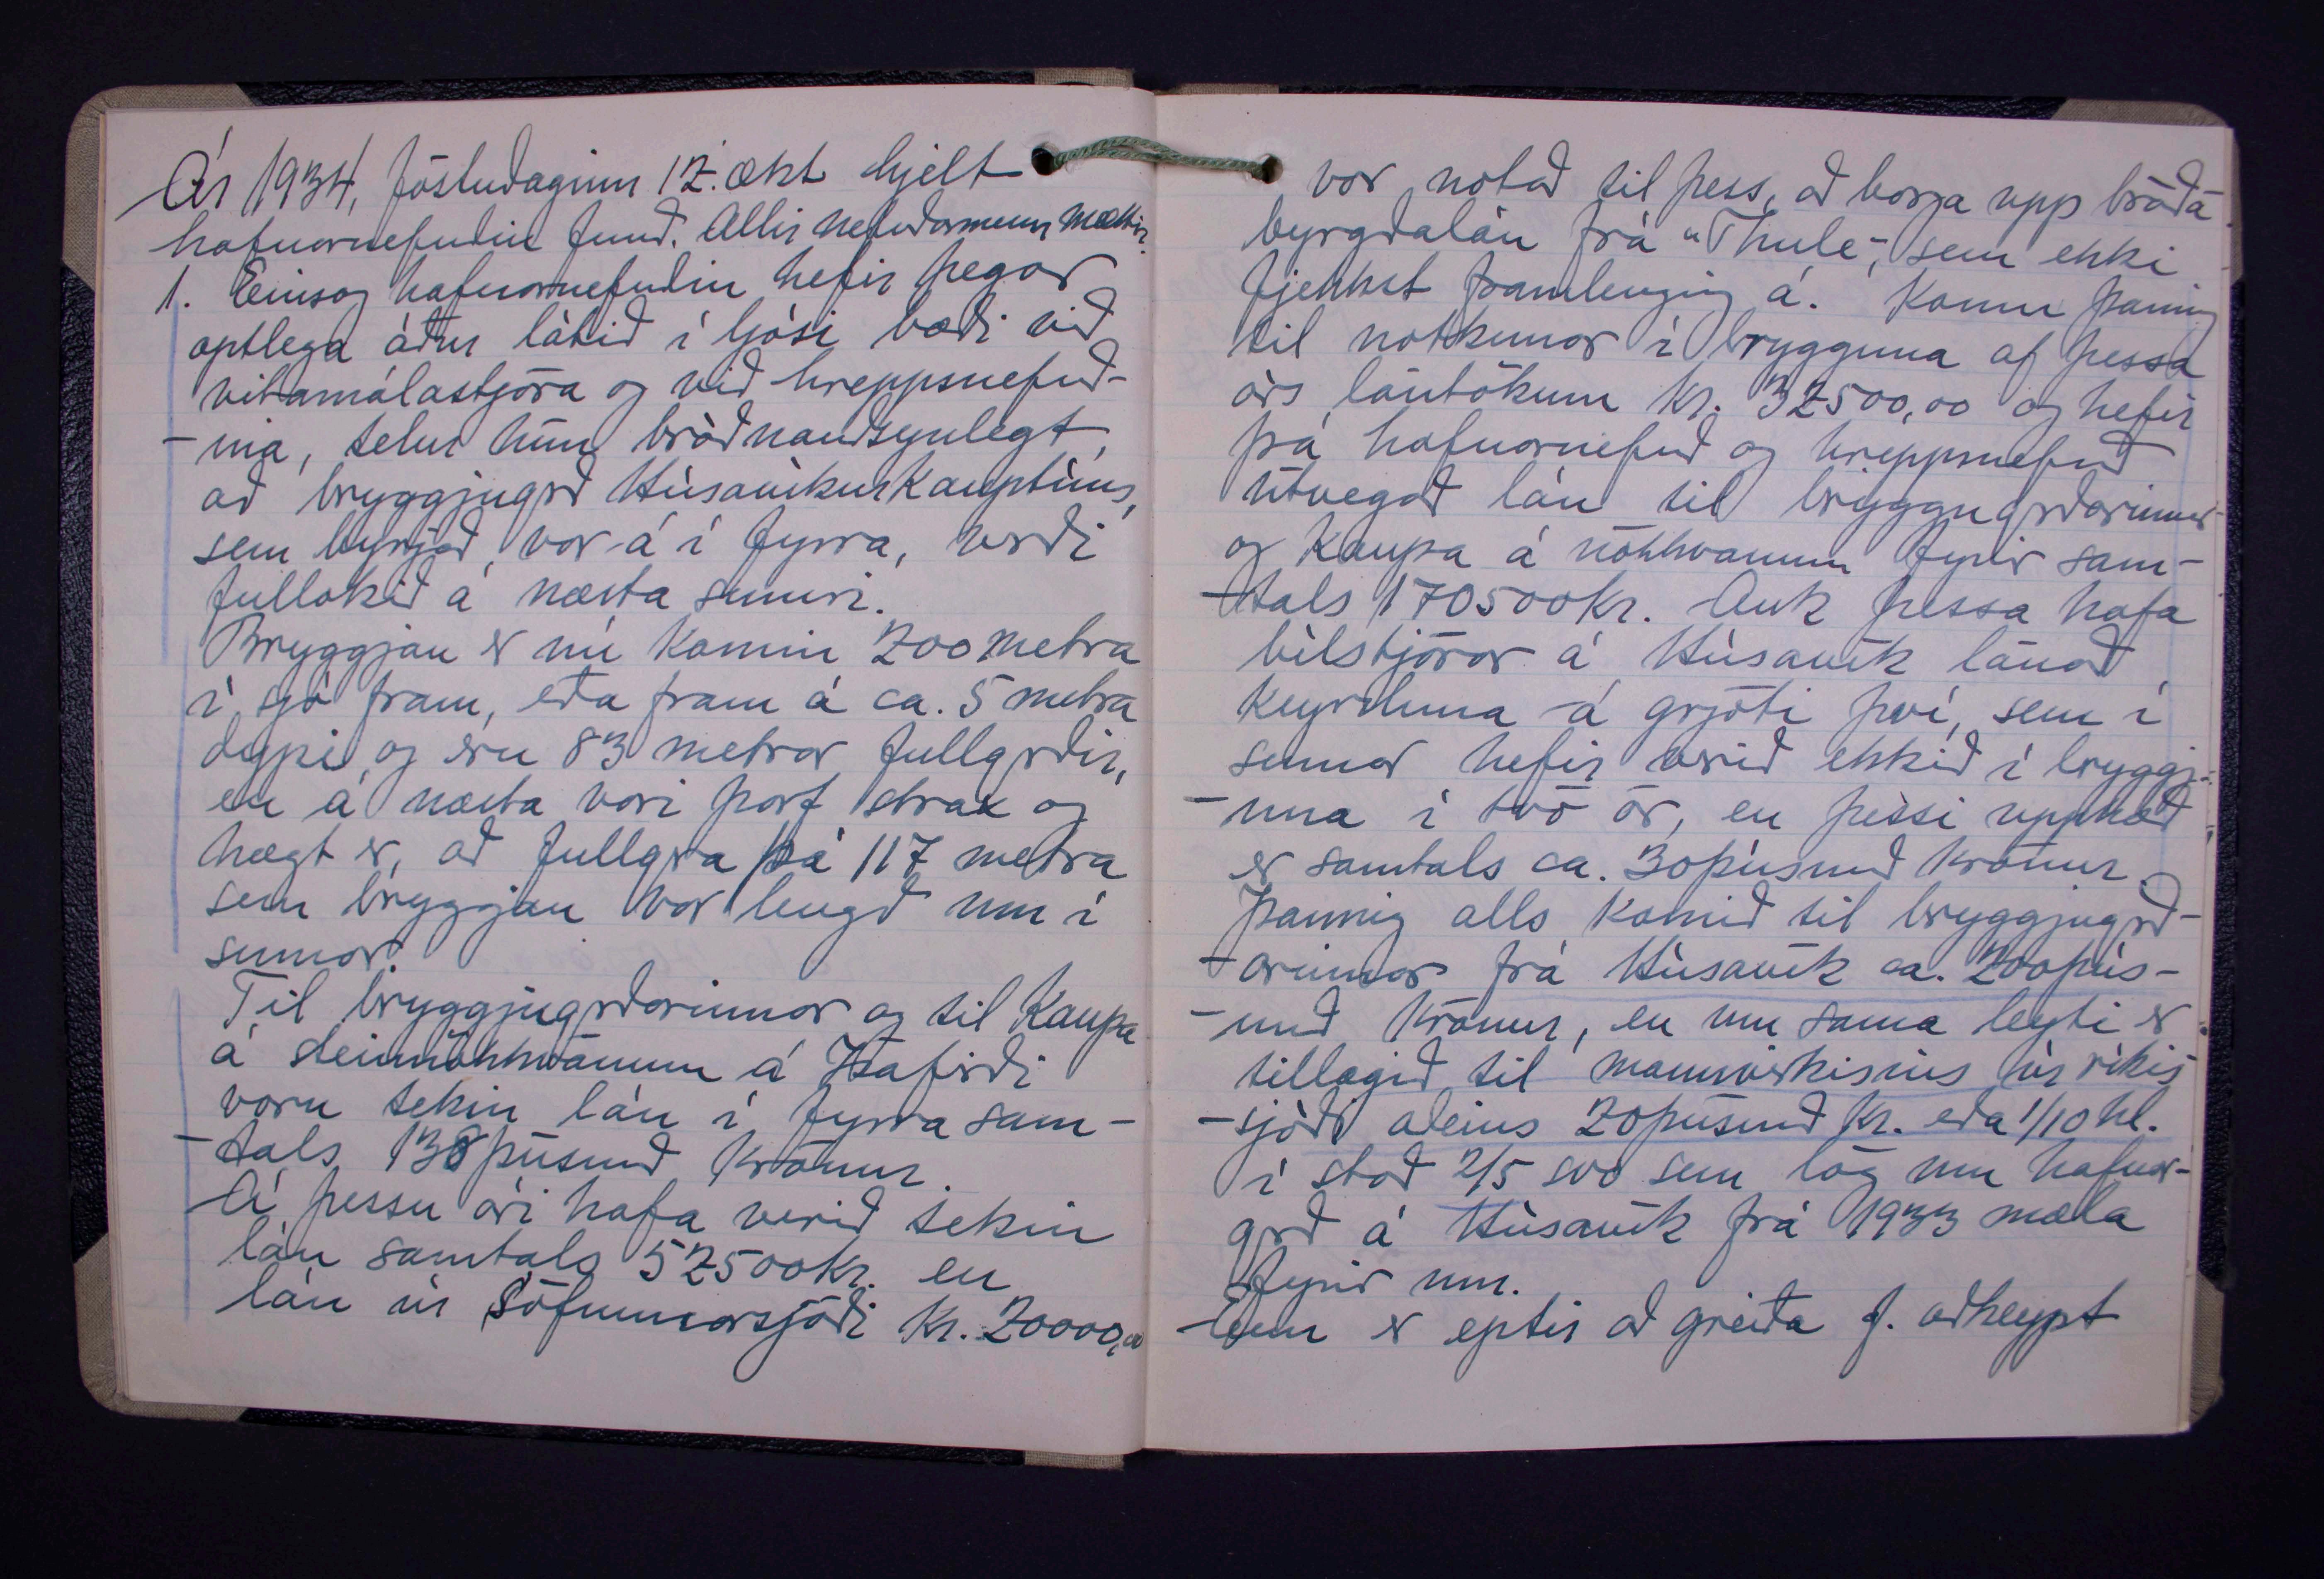 Ár 1934, föstudaginn 12. okt hjelt
hafnarnefndin fund. Allir nefndarmenn mættir.
1. Einsog hafnarnefndin hefir þegar
optlega áður látið í ljósi bæði við
vitamálastjóra og við hreppsnefnd-
-ina, telur hún bráðnauðsynlegt,
að bryggjugerð Húsavíkurkauptúns,
sem byrjað var á í fyrra, verði
fullokið á næsta sumri.
Bryggjan er nú komin 200 metra
í sjó fram, eða fram á ca. 5 metra
dýpi, og eru 83 metrar fullgerðir,
en á næsta vori þarf strax og
hægt er, að fullgera þá 117 metra
sem bryggjan var lengd um í
sumar.
Til bryggjugerðarinnar og til kaupa
á steinnökkvanum á Ísafirði
voru tekin lán í fyrra sam-
-tals 138 þúsund krónur.
Á þessu ári hafa verið tekin
lán samtals 52500 kr. en
lán úr Söfnunarsjóði kr. 20000,00
var notað til þess, að borga upp bráða
byrgðalán frá "Thule", sem ekki
fjekkst framlenging á. Komu þannig
til notkunar í brygguna af þessa
árs lántökum kr. 32500,00 og hefir
þá hafnarnefnd og hreppsnefnd
útvegað lán til bryggugerðarinnar
og kaupa á nökkvanum fyrir sam-
-tals 170500 kr. Auk þessa hafa
bílstjórar á Húsavík lánað
keyrsluna á grjóti því, sem í
sumar hefir verið ekkið í bryggj-
-una í tvö ár, en þessi upphæð
er samtals ca. 30 þúsund krónur.
Þannig alls komið til bryggjugerð-
-arinnar frá Húsavík ca. 200 þús-
-und krónur, en um sama leyti er
tillagið til mannvirkisins úr ríkis
-sjóði aðeins 20 þúsund kr. eða 1/10 hl.
í stað 2/5 svo sem lög um hafnar-
gerð á Húsavík frá 1933 mæla
fyrir um.
Enn er eptir að greiða f. aðkeypt